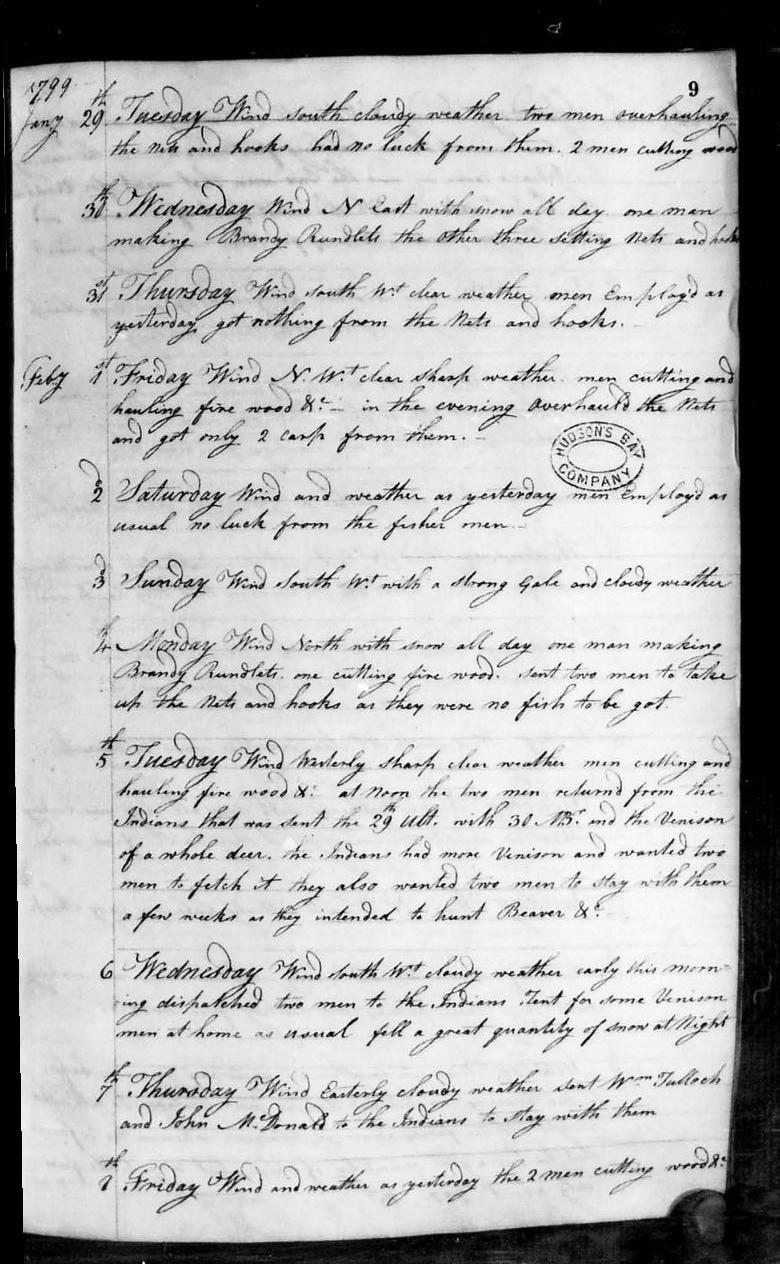 9
1799
Jany 29th Tuesday Wind south cloudy weather two men overhauling
the Nets and hooks had no luck from them. 2 men cutting wood
30th Wednesday Wind N East with snow all day one man
making Brandy Rundlets the other three setting Nets and hooks
31st Thursday Wind south Wt clear weather men Employd as
yesterday got nothing from the Nets and hooks.
Feby 1st Friday Wind N. Wt clear sharp weather men cutting and
hauling fire wood &c – in the evening Overhauld the Nets
and got only 2 carp from them. –
HUDSON'S BAY
COMPANY
2d Saturday Wind and weather as yesterday men Employd as
usual no luck from the fisher men –
3d Sunday Wind South Wt with a strong Gale and cloudy weather
4th Monday Wind North with snow all day one man making
Brandy Rundlets. one cutting fire wood. sent two men to take
up the Nets and hooks as they were no fish to be got.
5th Tuesday Wind Westerly sharp clear weather men cutting and
hauling fire wood &c at Noon the two men returnd from the
Indians that was sent the 29th Ult. with 30 MBr and the Venison
of a whole deer. the Indians had more Venison and wanted two
men to fetch it they also wanted two men to stay with them
a few weeks as they intended to hunt Beaver &c.
6 Wednesday Wind South Wt cloudy weather early this morn-
ing dispatched two men to the Indians Tent for some Venison
men at home as usual fell a great quantity of snow at Night
7th Thursday Wind Easterly cloudy weather sent Wm Tulloch
and John McDonald to the Indians to stay with them
8th Friday Wind and weather as yesterday the 2 men cutting wood &c